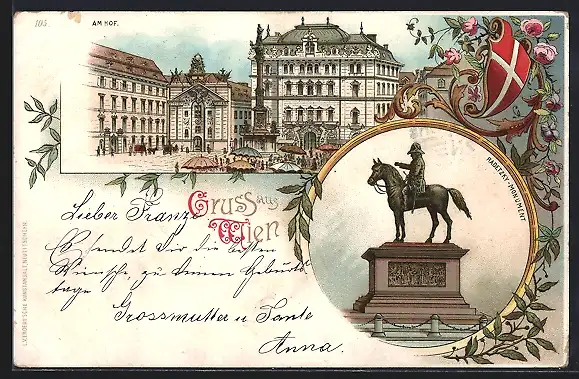 105.
AM HOF.
Gruss aus
Wien
RADETZKY-MONUMENT
Lieber Franze
Es sendet Dir die besten
Wünsche, zu deinem Geburts
tage
Grossmutter u Tante
Anna.